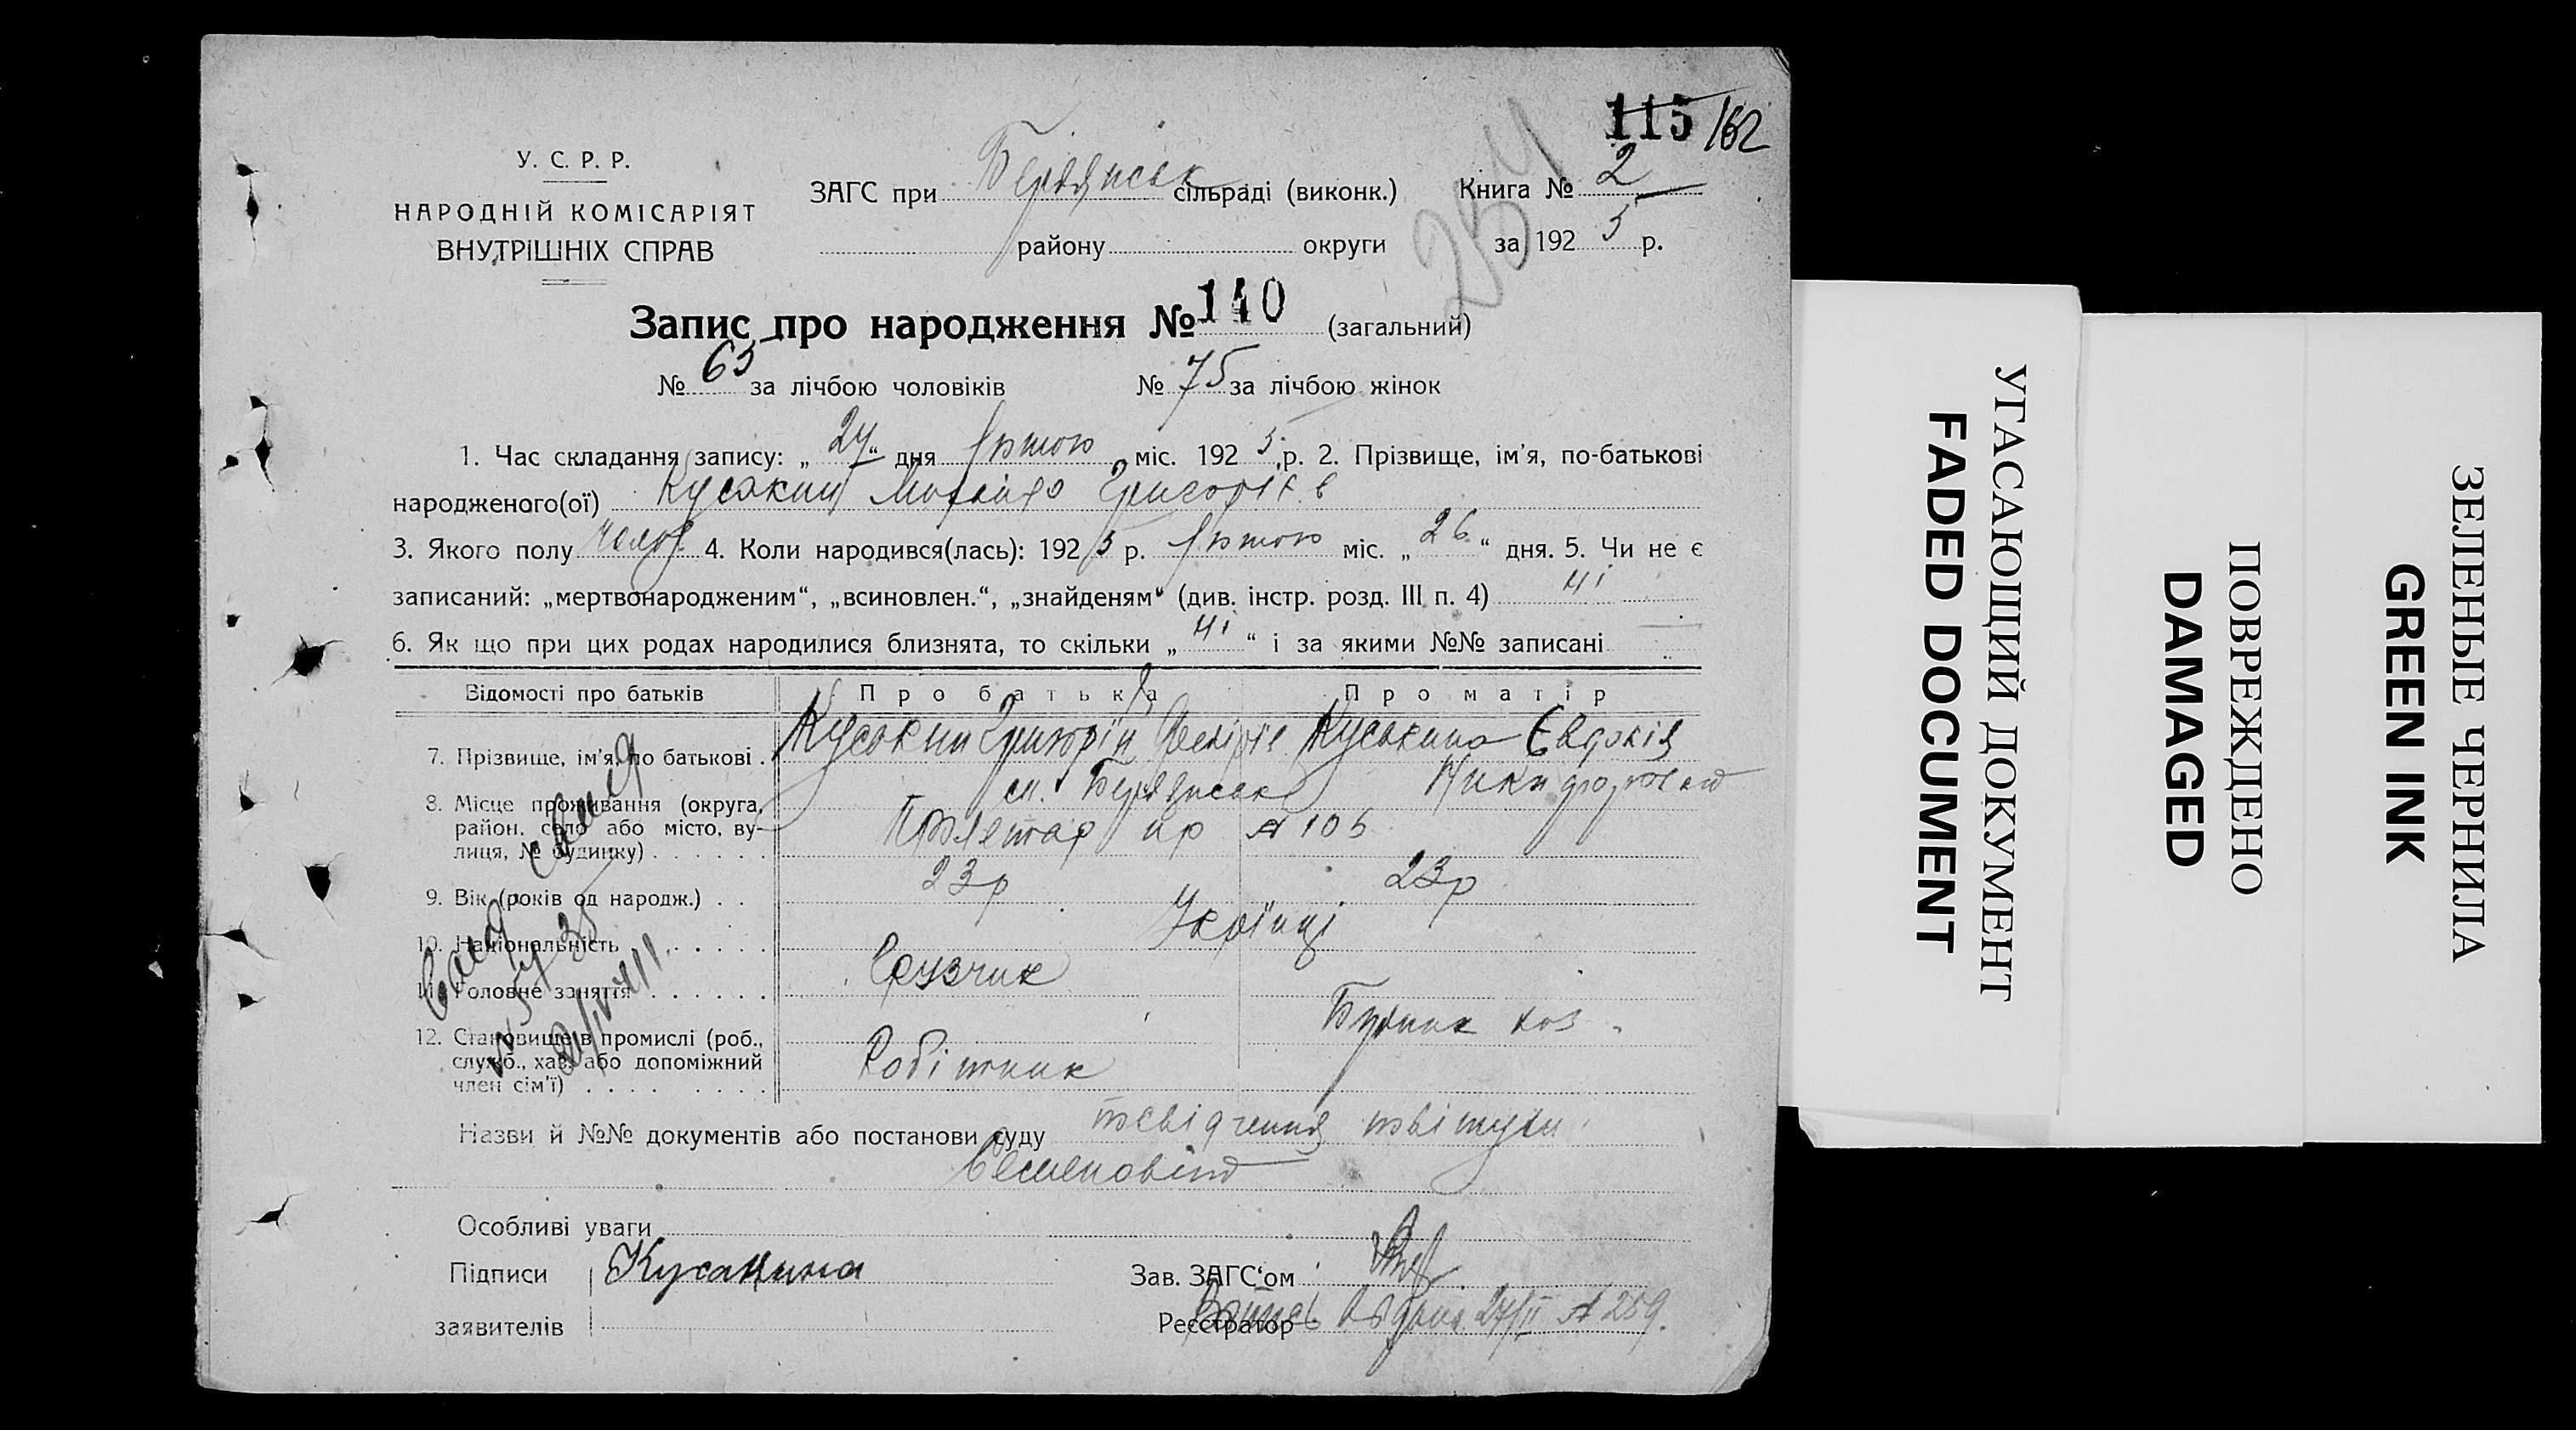 115 162
У. С. Р. Р.
НАРОДНІЙ КОМІСАРІЯТ
ВНУТРІШНІХ СПРАВ
ЗАГС при Бердянськ сільраді (виконк.) Книга № 2
району округи за 1925 р.
Запис про народження № 140 (загальний)
№ 65 за лічбою чоловіків № 75 за лічбою жінок
1. Час складання запису: „27“ дня Лютого міс. 1925 р. 2. Прізвище, ім'я, по-батькові
народженого(ої) Куськин Михайло Григорієв
3. Якого полу челов. 4. Коли народився(лась): 1925 р. Лютого міс. „26“ дня. 5. Чи не є
записаний: „мертвонародженим“, „всиновлен.“, „знайденям“ (див. інстр. розд. III п. 4) ні
6. Як що при цих родах народилися близнята, то скільки „ні“ і за якими №№ записані
Відомості про батьків Про батька Про матір
7. Прізвище, ім'я, по батькові . Куськин Григорій Куськина Євдокія
Никифоровна
8. Місце проживання (округа, район, село або місто, вулиця, № будинку) . . . . . . м. Бердянськ
Пролетар пр № 105
9. Вік (років од народж.) . . 23р 23р
10. Національність . . . . . Українці
11. Головне заняття . . . . . . Грузчик
12. Становище в промислі (роб., служб., хаз. або допоміжний член сім'ї) . . . . . . . Робітник
Назви й №№ документів або постанови суду посвідчення повітухи
Особливі уваги
Підписи Кусакина Зав. ЗАГС'ом
заявителів Реєстратор Витпсь видана 27/II № 259.
УГАСАЮЩИЙ ДОКУМЕНТ
FADED DOCUMENT
ПОВРЕЖДЕНО
DAMAGED
ЗЕЛЕНЫЕ ЧЕРНИЛА
GREEN INK